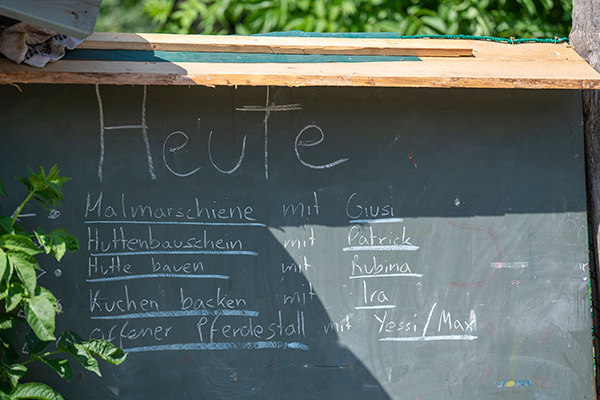 Heute
Malmarschiene mit Giusi
Hüttenbauschein mit Patrick
Hütte bauen mit Rubina
Kuchen backen mit Ira
offener Pferdestall mit Yessi/Max